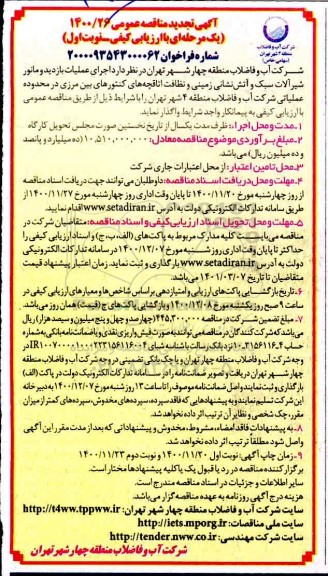 آگهی تجدید مناقصه عمومی ۱۴۰۰/۲۶
(یک مرحله‌ای با ارزیابی کیفی ـ نوبت اول)
شماره فراخوان ۲۰۰۰۰۹۳۵۴۳۰۰۰۰۶۲
شرکت آب و فاضلاب
منطقه ۴ شهر تهران
(سهامی خاص)
شرکت آب و فاضلاب منطقه چهار شهر تهران در نظر دارد اجرای عملیات بازدید و مانور
شیرآلات سبک و آتش‌نشانی زمینی و نظافت اتاقچه‌های کنتورهای بین مرزی در محدوده
عملیاتی شرکت آب و فاضلاب منطقه ۴ شهر تهران را با شرایط ذیل از طریق مناقصه عمومی
با ارزیابی کیفی به پیمانکار واجد شرایط واگذار نماید.
۱ـ مدت و محل اجرا: ظرف مدت یکسال از تاریخ نخستین صورت مجلس تحویل کارگاه
۲ـ مبلغ برآوردی موضوع مناقصه معادل: ۱۰,۵۱۰,۰۰۰,۰۰۰ (ده میلیارد و پانصد
و ده میلیون ریال) می‌باشد.
۳ـ محل تامین اعتبار: از محل اعتبارات جاری شرکت
۴ـ مهلت و محل دریافت اسناد مناقصه: داوطلبان می‌توانند جهت دریافت اسناد مناقصه
از روز چهارشنبه مورخ ۱۴۰۰/۱۱/۲۰ تا پایان وقت اداری روز چهارشنبه مورخ ۱۴۰۰/۱۱/۲۷ از
طریق سامانه تدارکات الکترونیکی دولت به آدرس www.setadiran.ir اقدام نمایند.
۵ـ مهلت و محل تحویل اسناد ارزیابی کیفی و اسناد مناقصه: متقاضیان شرکت در
مناقصه می‌بایست کلیه مدارک مربوط به پاکت‌های (الف، ب، ج) و اسناد ارزیابی کیفی را
حداکثر تا پایان وقت اداری روز شنبه مورخ ۱۴۰۰/۱۲/۰۷ در سامانه تدارکات الکترونیکی
دولت به آدرس www.setadiran.ir بارگذاری و ثبت نمایند. زمان اعتبار پیشنهاد قیمت
متقاضیان تا تاریخ ۱۴۰۱/۰۳/۰۷ می‌باشد.
۶ـ تاریخ بازگشایی پاکت‌های ارزیابی و امتیازدهی براساس شاخص‌ها و معیارهای ارزیابی کیفی در
ساعت ۹ صبح روز یکشنبه مورخ ۱۴۰۰/۱۲/۰۸ و بازگشایی پاکت‌های ج (قیمت) همان روز می‌باشد.
۷ـ مبلغ تضمین شرکت در مناقصه ۴۴۵,۳۰۰,۰۰۰ (چهارصد و چهل و پنج میلیون و سیصد هزار) ریال
می‌باشد که شرکت کنندگان در مناقصه می‌توانند به صورت فیش واریزی نقدی یا ضمانت‌نامه بانکی به شماره
وجه شرکت آب و فاضلاب منطقه چهار تهران و یا چک بانکی تضمینی در وجه شرکت آب و فاضلاب منطقه
چهار شهر تهران دریافت و تصویر ضمانت‌نامه را در سامانه تدارکات الکترونیک دولت در پاکت (الف)
بارگذاری و ثبت نمایند و اصل ضمانت‌نامه موصوف را تا ساعت ۱۳ روز شنبه مورخ ۱۴۰۰/۱۲/۰۷ به دبیرخانه
این شرکت تسلیم نمایند و به پیشنهادهایی که فاقد سپرده، سپرده‌های مخدوش، سپرده‌های کمتر از میزان
مقرر، چک شخصی و نظایر آن ترتیب اثر داده نخواهد شد.
۸ـ به پیشنهادات فاقد امضاء، مشروط، مخدوش و پیشنهاداتی که بعد از مدت مقرر این آگهی
واصل شود مطلقا ترتیب اثر داده نخواهد شد.
۹ـ زمان چاپ آگهی: نوبت اول ۱۴۰۰/۱۱/۲۰ و نوبت دوم ۱۴۰۰/۱۱/۲۳
برگزارکننده مناقصه در رد یا قبول یک یا کلیه پیشنهادها مختار است.
سایر اطلاعات و جزئیات در اسناد مناقصه مندرج است.
هزینه درج آگهی روزنامه به عهده مناقصه گزار می‌باشد.
سایت شرکت آب و فاضلاب منطقه چهار شهر تهران: http://t4ww.tppww.ir
سایت ملی مناقصات: http://iets.mporg.ir
سایت شرکت مهندسی: http://tender.nww.co.ir
شرکت آب و فاضلاب منطقه چهار شهر تهران